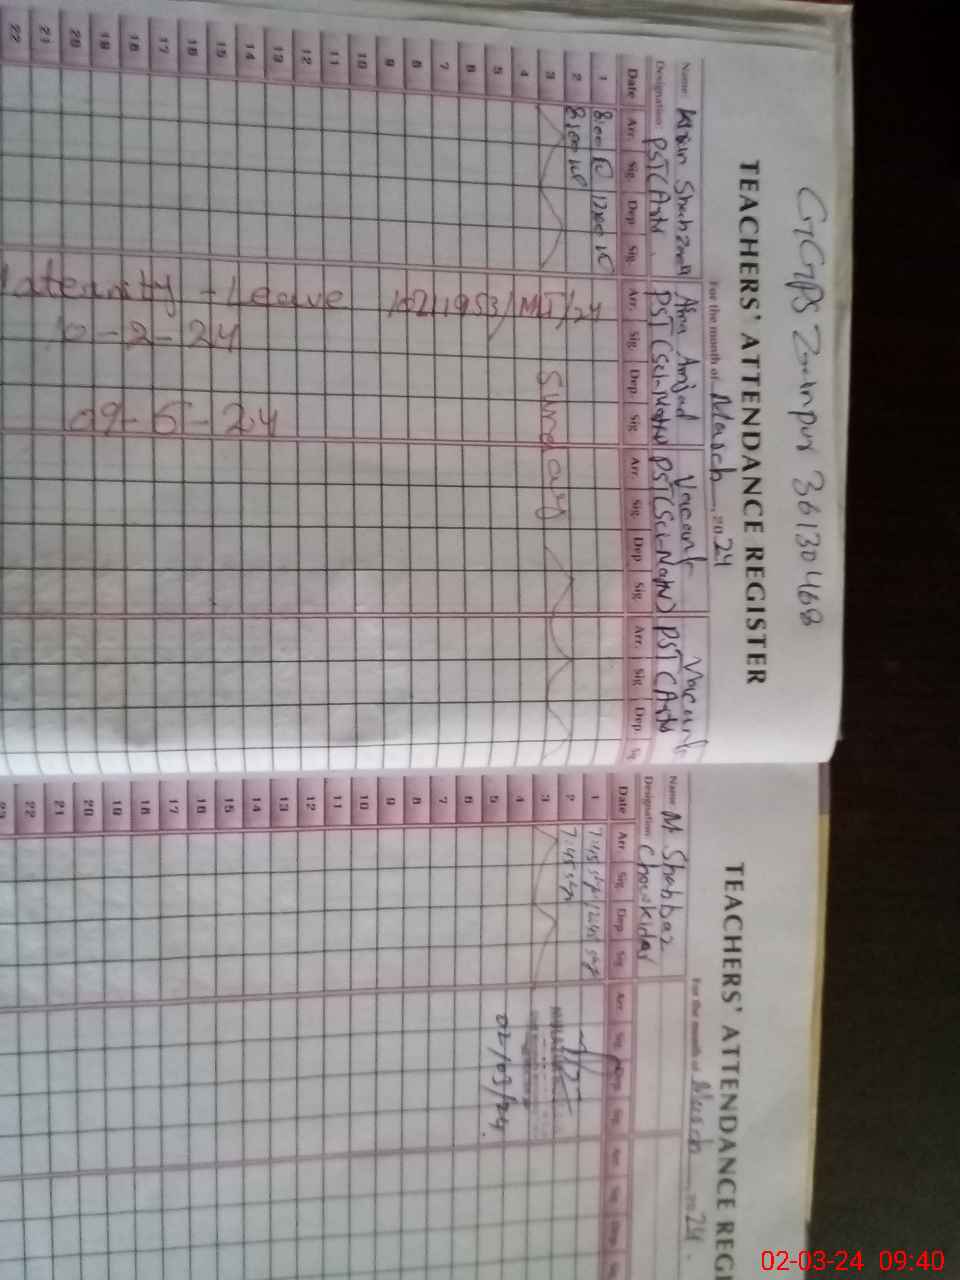 GGPS Zainpur 36130468
TEACHERS' ATTENDANCE REGISTER
For the month of March, 2024
Name: Shahzadi Afna Amjad Vacant Vacant
Designation: PST (Arts) PST (Sci-Math) PST (Sci-Math) PST (Arts)
Date Arr. Sig. Dep. Sig. Arr. Sig. Dep. Sig. Arr. Sig. Dep. Sig. Arr. Sig. Dep. Sig.
1 8:00 12:00
2 8:00
3 Sunday
4
5
6
7
8
9
10
11
12
13
14
15
16
17
18
19
20
21
22
/MLT/24
aternity - Leave
10-2-24
09-5-24
TEACHERS' ATTENDANCE REG
For the month of March 2024
Name M. Shahbaz
Designation Chowkidar
Date Arr. Sig. Dep. Sig. Arr. Sig. Dep. Sig. Arr. Sig. Dep. Sig.
1 7:45 12:45
2 7:45
3
4
5
6
7
8
9
10
11
12
13
14
15
16
17
18
19
20
21
22
23
02/03/24
02-03-24 09:40